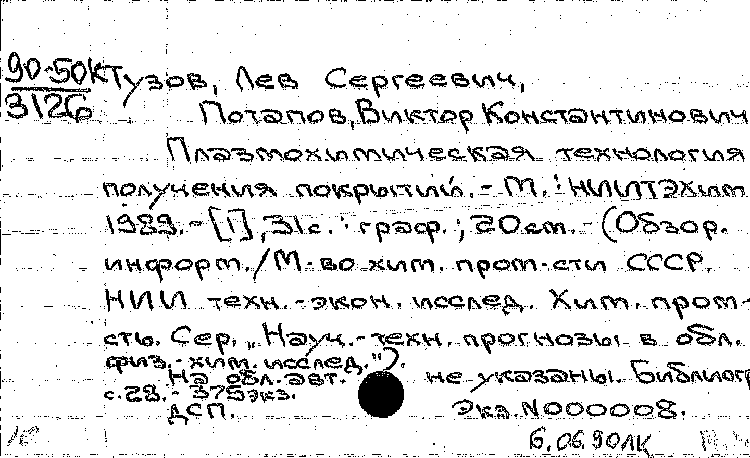 90-50К Тузов, Лев Сергеевич,
3126 Потапов, Виктор Константинович
Плазмохимическая технология
получения покрытий. - М. : НИИТЭхим
1989. - [1], 31 с. : граф. ; 20 см. - (Обзор.
информ. / М-во хим. пром-сти СССР,
НИИ техн.-экон. исслед. Хим. пром-
сть. Сер. „Науч.-техн. прогнозы в обл.
физ.-хим. исслед.").
На обл. авт. не указаны. Библиогр
с. 28. - 375 экз.
ДСП. Экз. N000008.
6.06.90 ЛК